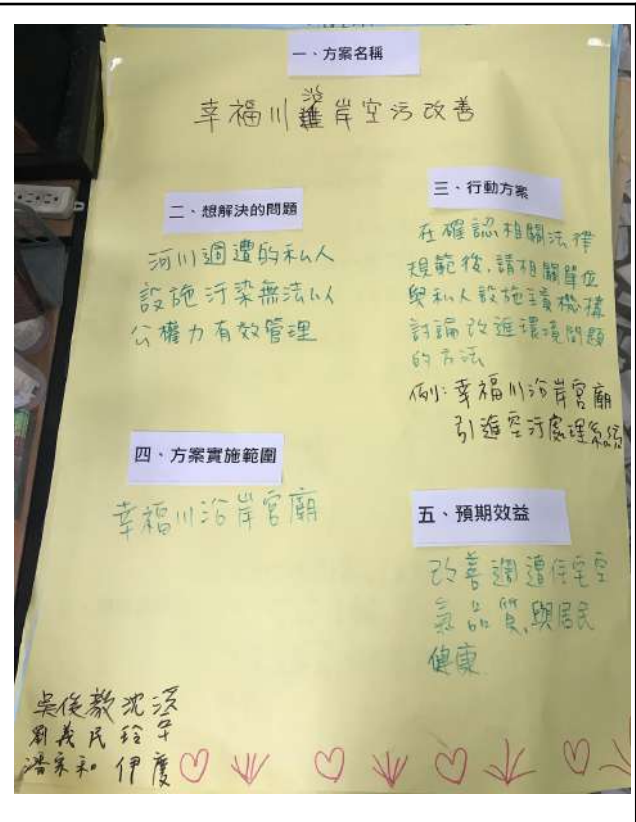 一、方案名稱
幸福川沿岸空污改善
二、想解決的問題
河川週遭的私人
設施汙染無法以
公權力有效管理
三、行動方案
在確認相關法律
規範後,請相關單位
與私人設施主責機構
討論改進環境問題
的方法
例:幸福川沿岸宮廟
引進空汙處理系統
四、方案實施範圍
幸福川沿岸宮廟
五、預期效益
改善週遭住宅空
氣品質,與居民
健康
劉義民
潘家和